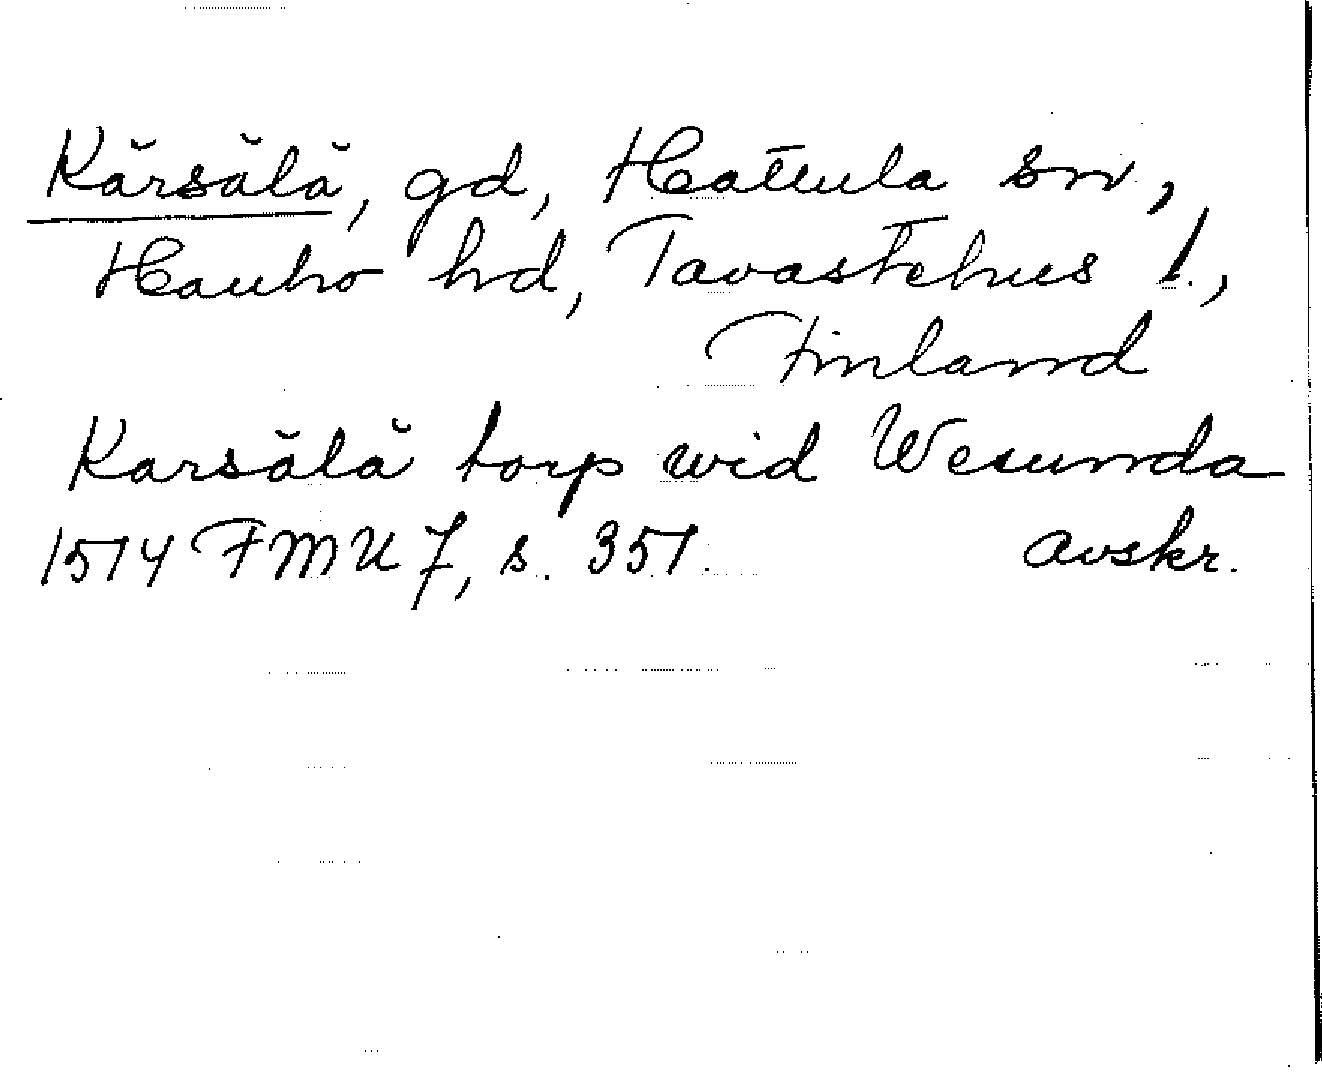 Kärsälä, gd, Hattula sn,
Hauho hd, Tavastehus l.,
Finland
Karsälä torp wid Wesunda
1514 FMU 7, s. 351. avskr.